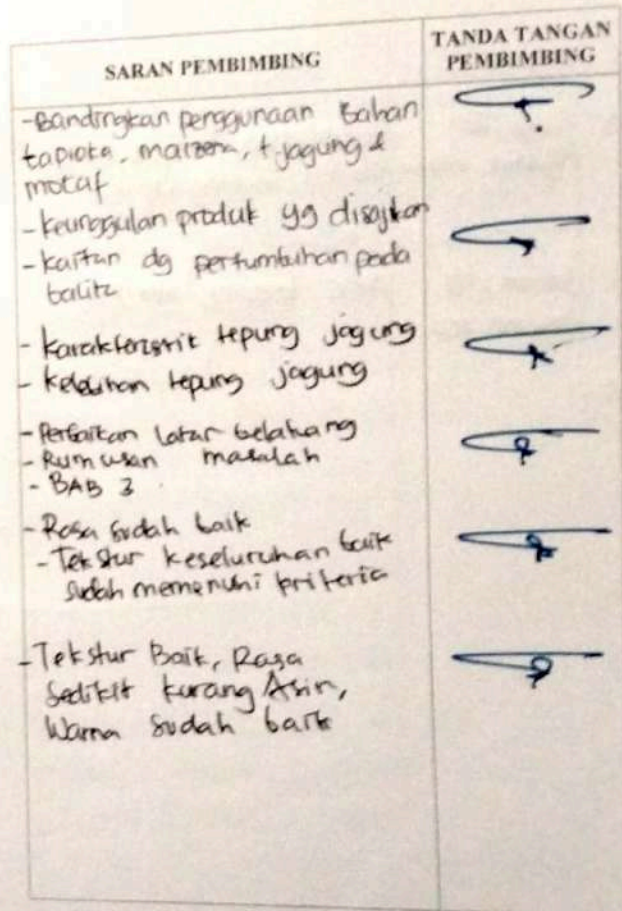 SARAN PEMBIMBING
TANDA TANGAN
PEMBIMBING
-Bandingkan penggunaan Bahan
tapioka, maizena, t jagung &
mocaf
- keunggulan produk yg disajikan
- kaitan dg pertumbuhan pada
balita
- karakteristik tepung jagung
- kelebihan tepung jagung
- Perbaikan latar belakang
- Rumusan masalah
- BAB 3
- Rasa sudah baik
- Tekstur keseluruhan baik
sudah memenuhi kriteria
- Tekstur Baik, Rasa
Sedikit kurang Asin,
Warna sudah baik